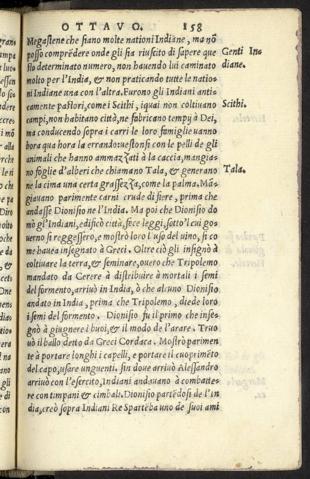 OTTAVO. 158
Megastene che siano molte nationi Indiane, ma nõ
posso comprēdere onde gli sia riuscito di sapere que
sto determinato numero, non hauendo lui caminato
molto per l'India, & non praticando tutte le natio-
ni Indiane una con l'altra. Furono gli Indiani anti-
camente pastori, come i Scithi, i quai non coltiuano
campi, non habitano città, ne fabricano tempij à Dei,
ma conducendo sopra i carri le loro famiglie uanno
hora qua hora la errando: uestonsi con le pelli de gli
animali che hanno ammazzati à la caccia, mangia-
no foglie d'alberi che chiamano Tala, & generano
ne la cima una certa grassezza, come la palma. Mã
giauano parimente carni crude di fiere, prima che
andasse Dionisio ne l'India. Ma poi che Dionisio do
mò gl'Indiani, edificò città, fece leggi, sotto'l cui go-
uerno si reggessero, e mostrò loro l'uso del uino, si co
me hauea insegnato à Greci. Oltre ciò gli insegnò à
coltiuare la terra, & seminare, ouero che Tripolemo
mandato da Cerere à distribuire à mortali i semi
del formento, arriuò in India, ò che alcuno Dionisio
andato in India, prima che Tripolemo, diede loro
i semi del formento. Dionisio fu il primo che inse-
gnò à giugnere i buoi, & il modo de l'arare. Truo
uò il ballo detto da Greci Cordaca. Mostrò parimen
te à portare longhi i capelli, e portare il cuoprimēto
del capo, usare unguenti. fin doue arriuò Alessandro
arriuò con l'esercito, Indiani andauano à combatte-
re con timpani & cimbali. Dionisio partēdosi de l'In
dia, creò sopra Indiani Re Spartēba uno de suoi ami
Genti In-
diane.
Scithi.
Tala.